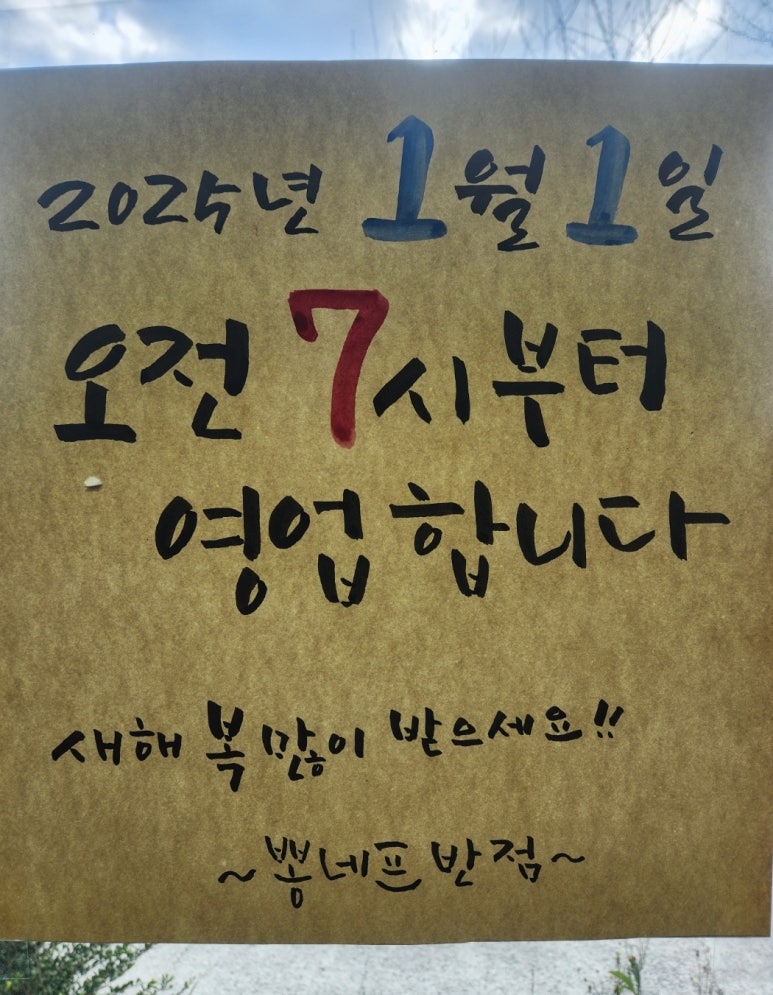 2025년 1월 1일
오전 7시부터
영업합니다
새해 복 많이 받으세요!!
~뽕네프반점~